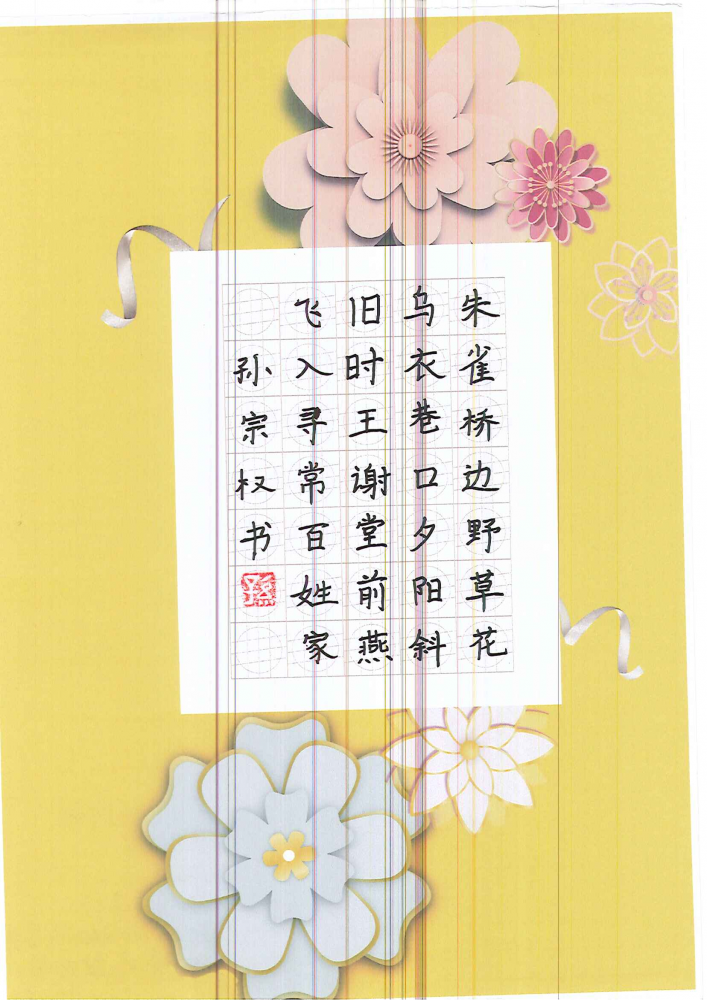 朱雀桥边野草花
乌衣巷口夕阳斜
旧时王谢堂前燕
飞入寻常百姓家
孙宗权书
孫